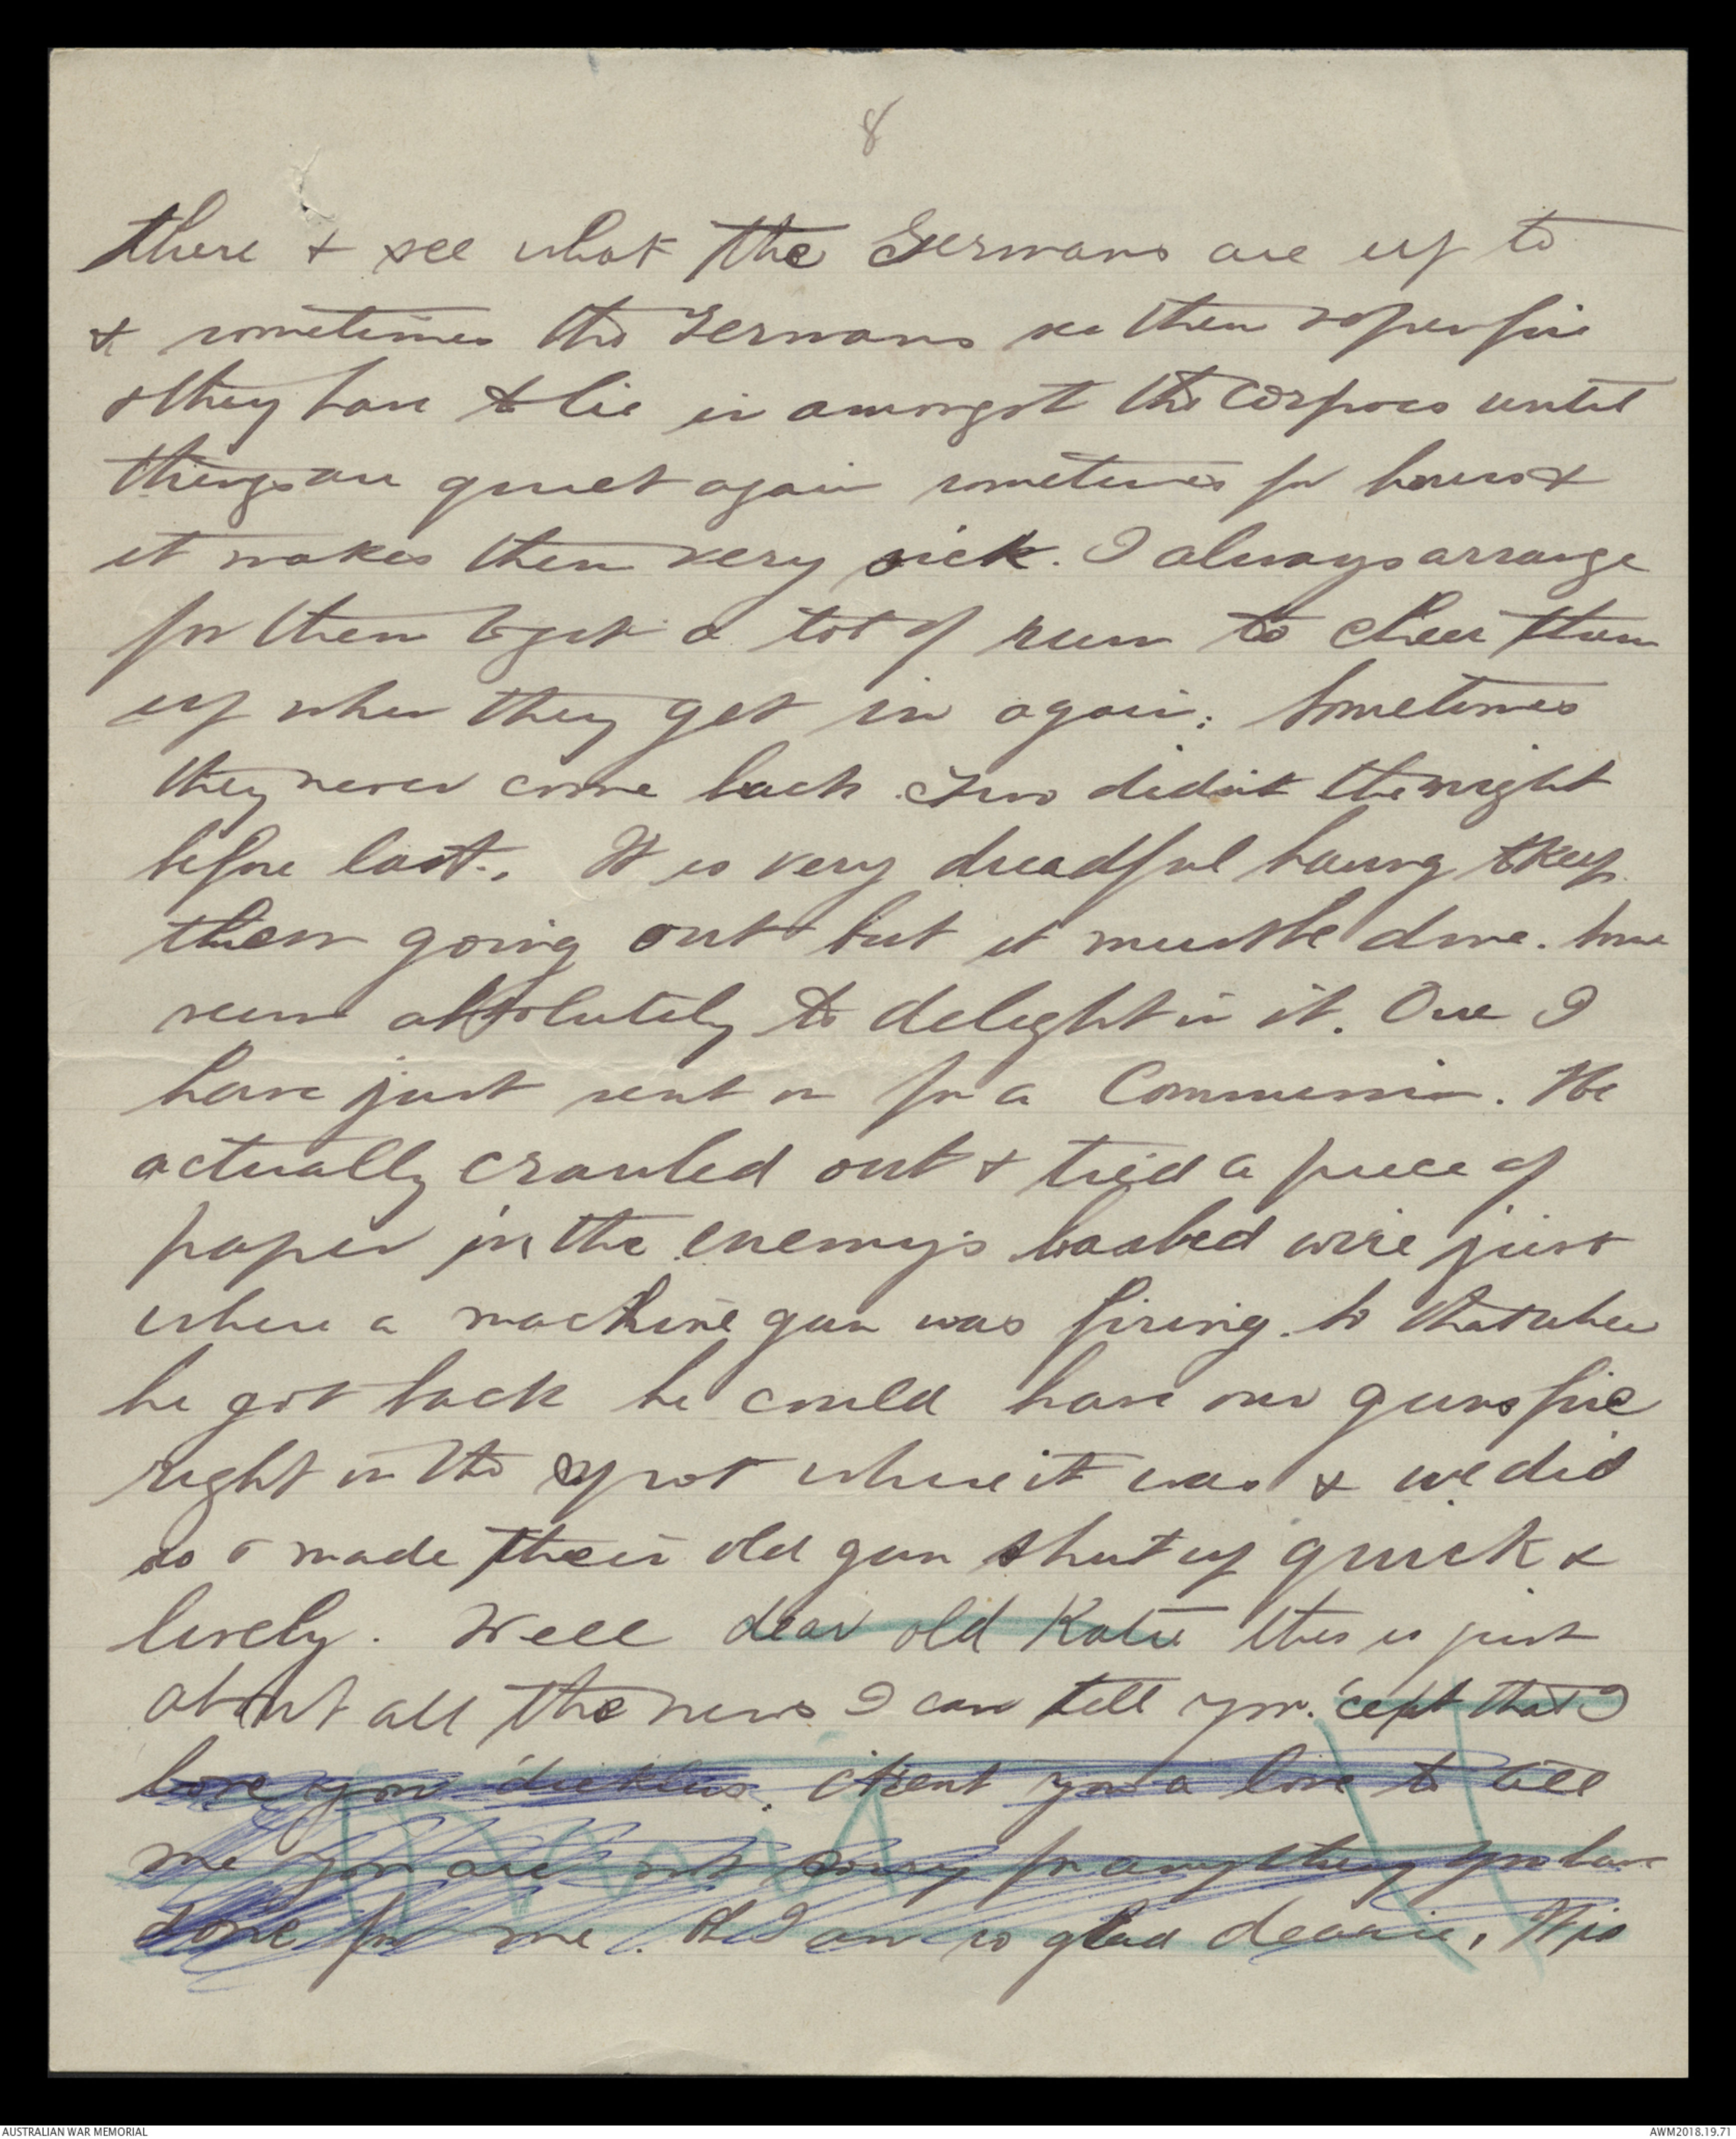 8
there & see what the Germans are up to
& sometimes the Germans see them & open fire
& they have to lie in amongst the corpses until
things are quiet again sometimes for hours &
it makes them very sick. I always arrange
for them to get a tot of rum to cheer them
up when they get in again. Sometimes
they never come back. Two didn't the night
before last. It is very dreadful having to keep
them going out but it must be done. Some
seem absolutely to delight in it. One I
have just sent in for a Commission. He
actually crawled out & tied a piece of
paper in the enemy's baabed wire just
where a machine gun was firing. So that when
he got back he could have our guns fire
right on the spot where it was & we did
so & made their old gun shut up quick &
lively. Well dear old Katie this is just
about all the news I can tell you. 'cept that I
love you. Arent you a love to tell
me you are not sorry for anything you have
done for me. I am so glad dearie, It is
AUSTRALIAN WAR MEMORIAL
AWM2018.19.71